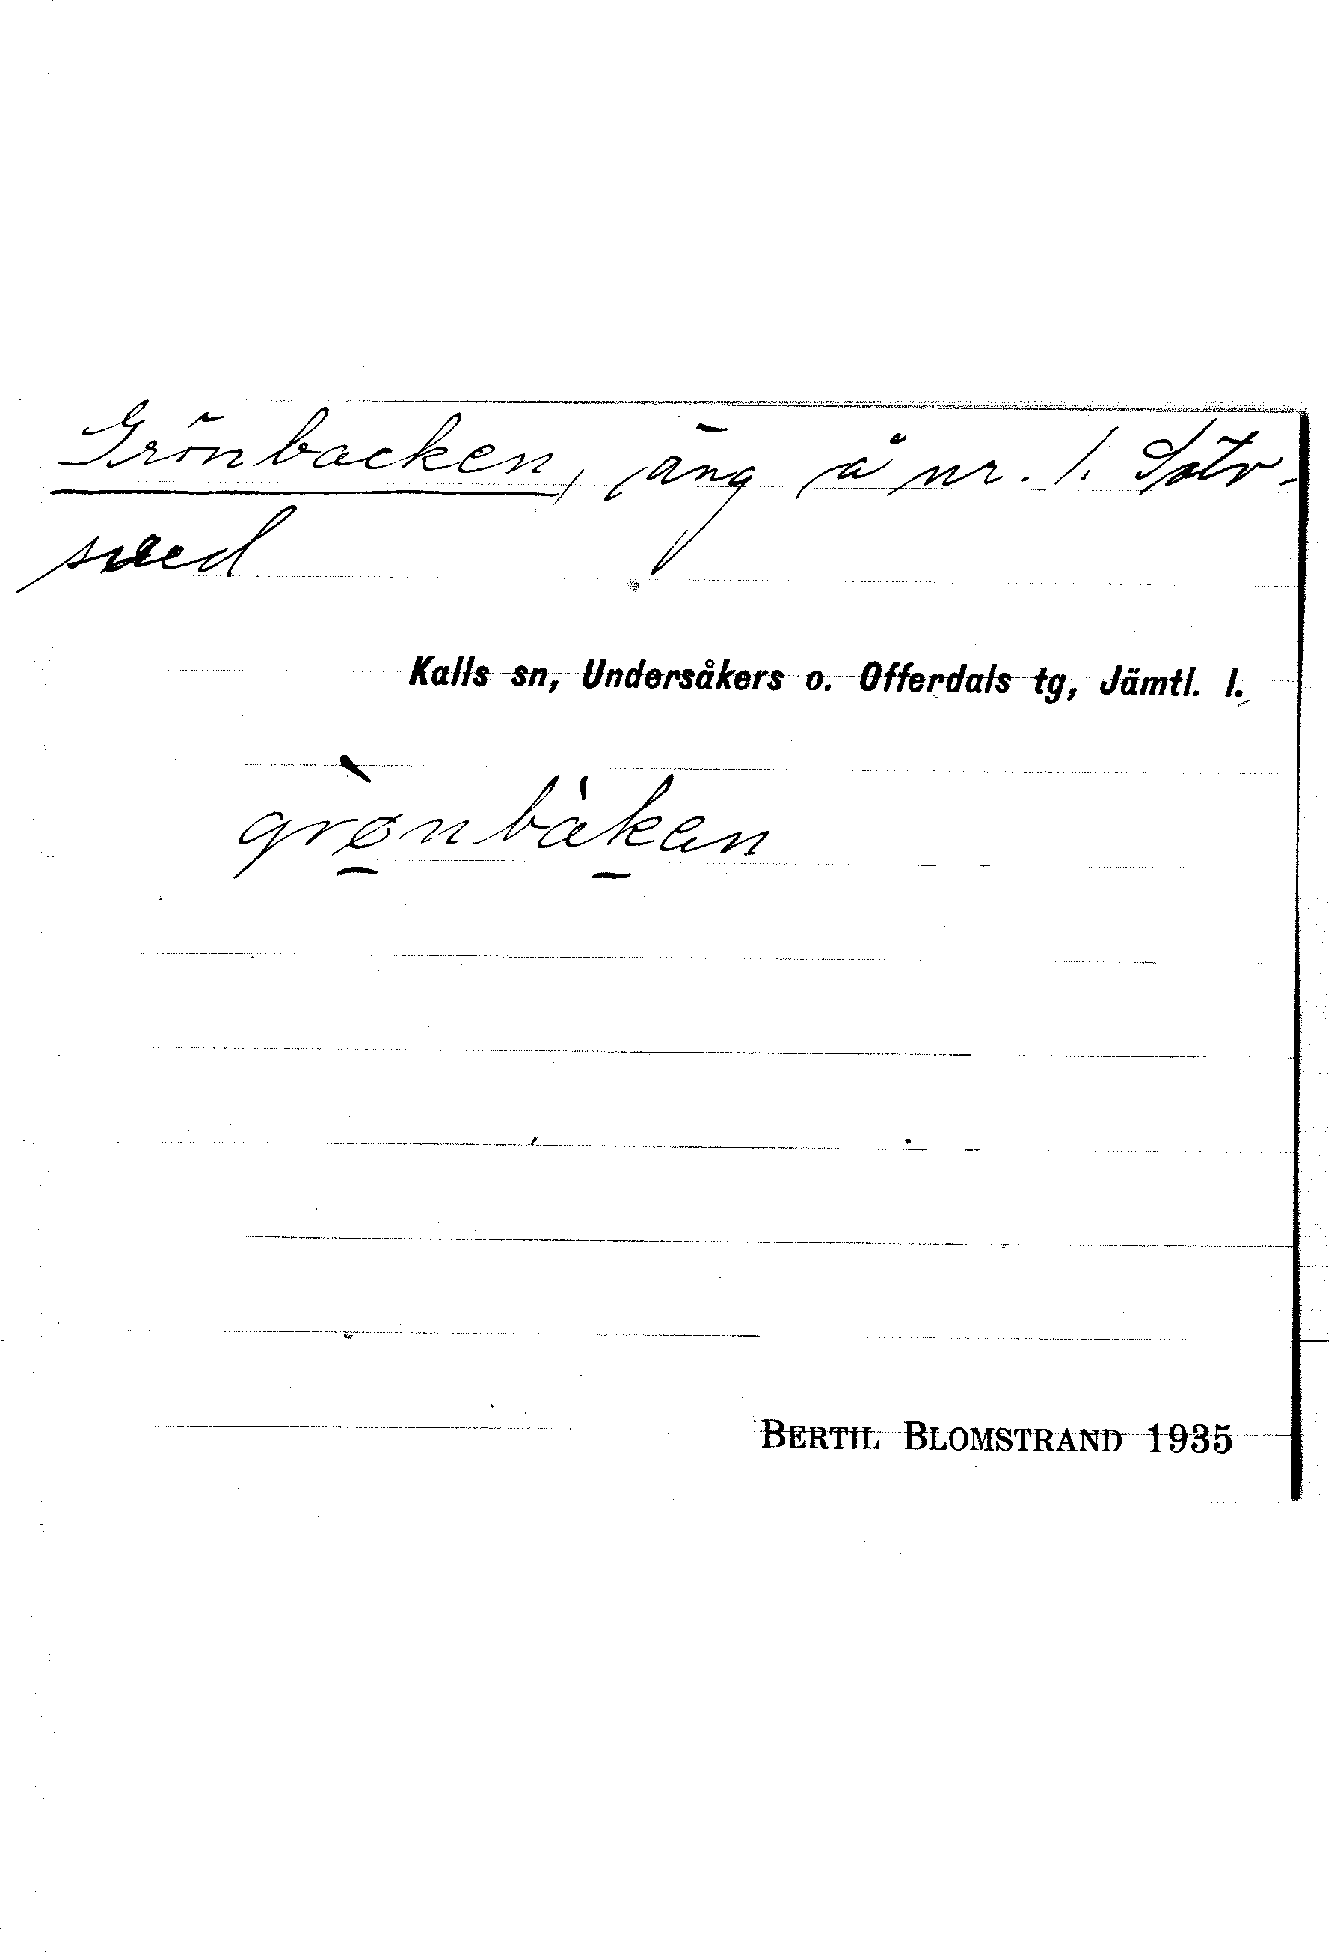 Grönbacken, äng å nr. 1. Sotr-
sved
Kalls sn, Undersåkers o. Offerdals tg, Jämtl. l.
grø̀nbàkan
BERTIL BLOMSTRAND 1935